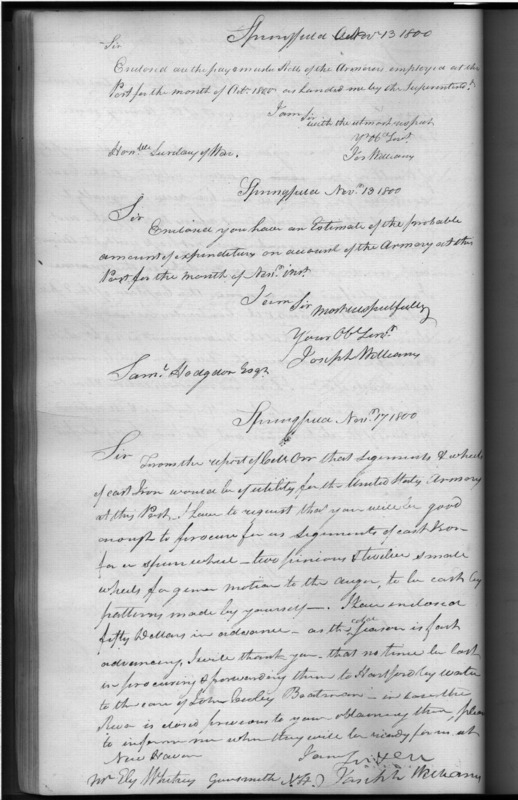 Springfield Nov 13 1800
Sir
Enclosed are the pay & muster Rolls of the Armorers employed at this
Post for the month of Oct. 1800 as handed me by the Superintendt.
I am Sir
with the utmost respect
Yr. Obt. Servt.
Honble Secretary of War.
Jos Williams
Springfield Novr. 13 1800
Sir
Enclosed you have an Estimate of the probable
amount of expenditures on account of the Armory at this
Post for the month of Novr. inst.
I am Sir most respectfully
Your Obt. Servt.
Joseph Williams
Saml. Hodgdon Esqr.
Springfield Novr. 17 1800
Sir From the report of Colo Orr that segments & wheels
of cast Iron would be of utility for the United States Armory
at this Post, I have to request that you will be good
enough to procure for us segments of cast Iron
for a spur wheel - two pinions & twelve small
wheels for motion to the auger, to be cast by
patterns made by yourself -. I have enclosed
fifty Dollars in advance - as the cold season is fast
advancing, I will thank you that no time be lost
in procuring & forwarding them to Hartford by water
to the care of John Boatman - in case the
River is closed previous to your obtaining them, please
to inform me when they will be ready for us at
New Haven
I am
Mr Ely Whitney Gunsmith N.H.) Joseph Williams